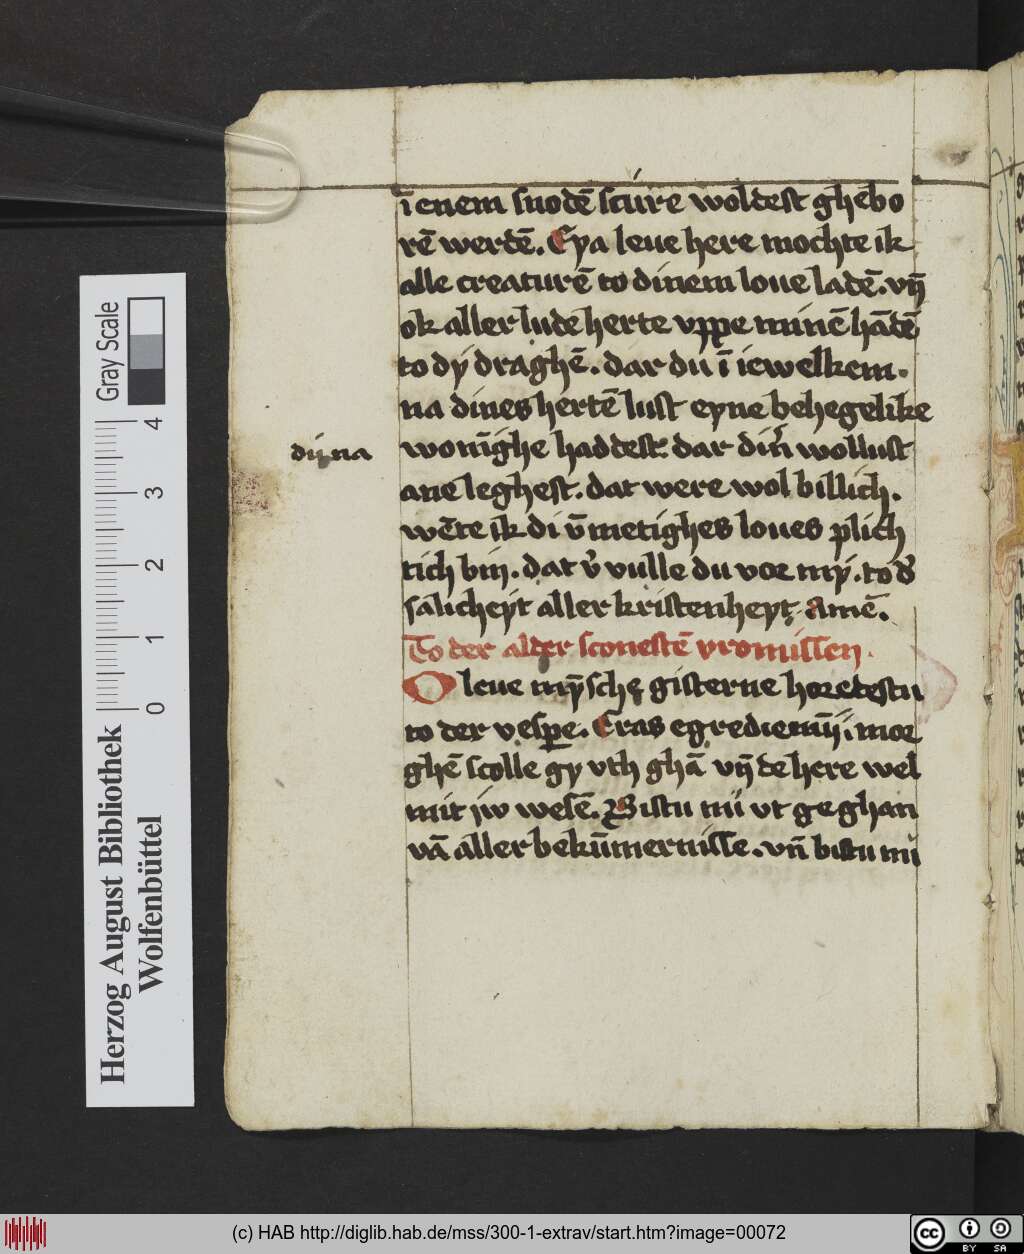 ī enem snodē scure woldest ghebo
rē werdē. Eya leue here mochte ik
alle creaturē to dinem loue ladē. vn̄
ok aller lude herte vppe minē hādē
to dy draghē. dar du ī iewelkem.
na dines hertē lust eyne behegelike
dy na
wonīghe haddest. dar din wollust
ane leghest. dat were wol billich.
wēte ik di v̄metighes loues plich
tich bin. dat v̄vulle du vor my. to d
salicheyt aller kristenheyt Amē.
To der alder sconestē vromissen.
O leue mȳsche gisterne horedestu
to der vespe. Cras egrediemini. mor
ghē scolle gy vth ghā vn̄ de here wel
mit iw wesē. Bistu nu vt geghan
vā aller bekūmernisse. vn̄ bistu nu
Gray Scale
0 1 2 3 4
Herzog August Bibliothek
Wolfenbüttel
(c) HAB http://diglib.hab.de/mss/300-1-extrav/start.htm?image=00072
cc BY SA